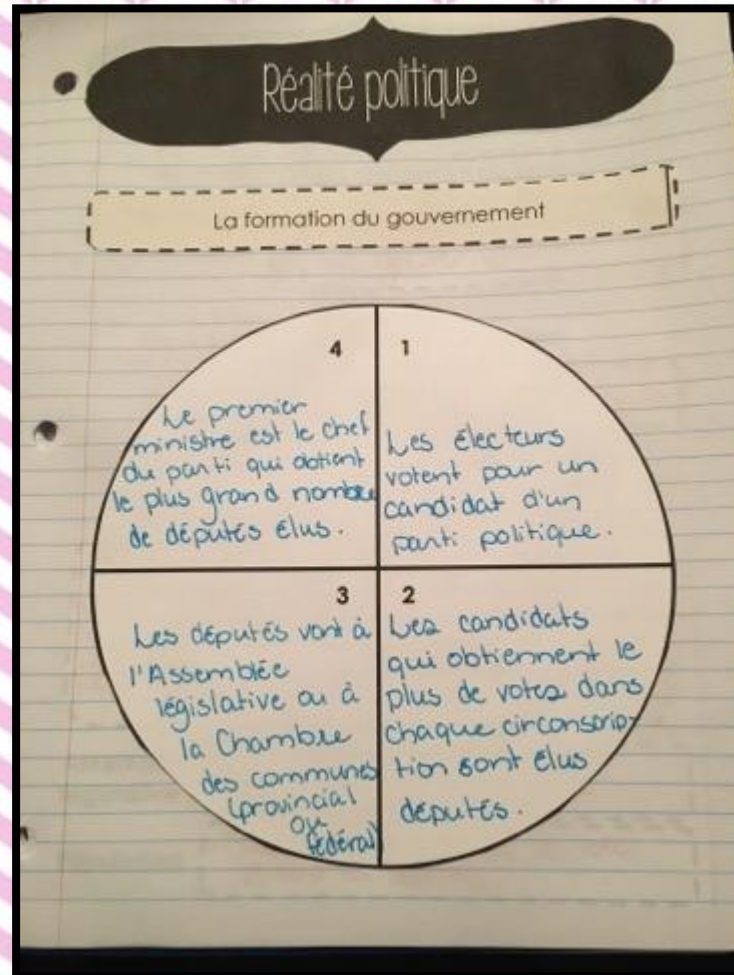 Réalité politique
La formation du gouvernement
4
Le premier
ministre est le chef
du parti qui obtient
le plus grand nombre
de députés élus.
1
Les électeurs
votent pour un
candidat d'un
parti politique.
3
Les députés vont à
l'Assemblée
législative ou à
la Chambre
des communes
(provincial
ou
fédéral)
2
Les candidats
qui obtiennent le
plus de votes dans
chaque circonscrip-
tion sont élus
députés.